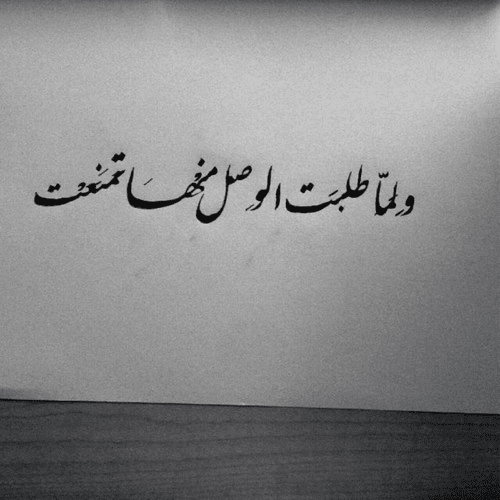 ولمّا طلبَت الوصِل منْهَا تمنَعَت